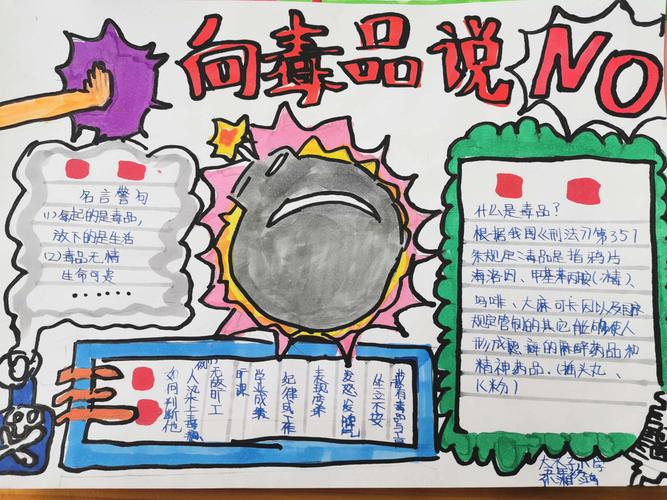 向毒品说NO
名言警句
(1)每起的是毒品,
放下的是生活
(2)毒品无情
生命可是
......
什么是毒品?
根据我国《刑法》第357
条规定:毒品是指鸦片
海洛因、甲基苯丙胺(冰)、
吗啡、大麻可卡因以及
规定管制的其它能够使人
形成瘾癖的麻醉药品和
精神药品。(摇头丸、
K粉)
如何判断他
人染上毒
无故旷工
旷课
学业成绩
纪律或
表现变
发怒发脾气
坐立不安
藏有毒品